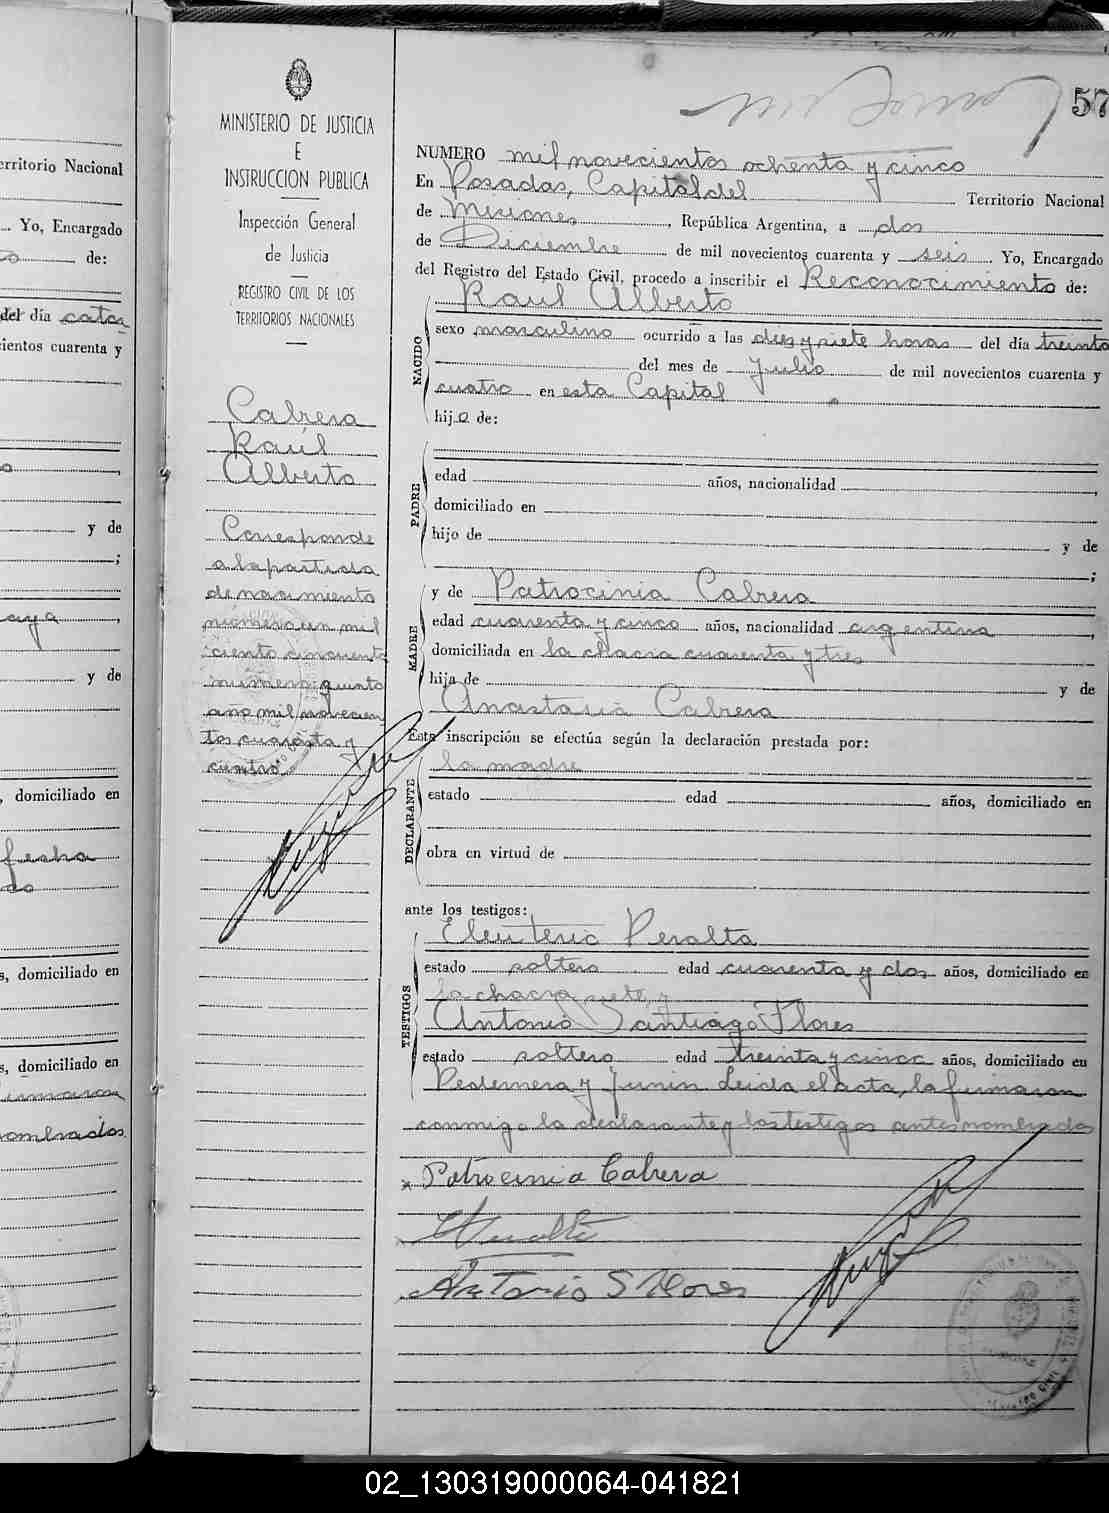 erritorio Nacional
Yo, Encargado
de:
del día
ientos cuarenta y
y de
;
aya
y de
, domiciliado en
fecha
do
s, domiciliado en
s, domiciliado en
firmaron
nombrados
MINISTERIO DE JUSTICIA
E
INSTRUCCION PUBLICA
Inspección General
de Justicia
REGISTRO CIVIL DE LOS
TERRITORIOS NACIONALES
Cabrera
Raúl
Alberto
Corresponde
a la partida
de nacimiento
número un mil
ciento cincuenta
número quinto
año mil novecien
tos cuarenta y
cuatro
57
NUMERO mil novecientos ochenta y cinco
En Posadas, Capital del Territorio Nacional
de Misiones, República Argentina, a dos
de Diciembre de mil novecientos cuarenta y seis Yo, Encargado
del Registro del Estado Civil, procedo a inscribir el Reconocimiento de:
Raúl Alberto
NACIDO
sexo masculino ocurrido a las diez y siete horas del día treinta
del mes de Julio de mil novecientos cuarenta y
cuatro en esta Capital
hijo de:
PADRE
edad años, nacionalidad ,
domiciliado en
hijo de y de
;
MADRE
y de Patrocinia Cabrera
edad cuarenta y cinco años, nacionalidad argentina ,
domiciliada en la chacra cuarenta y tres
hija de y de
Anastasia Cabrera
Esta inscripción se efectúa según la declaración prestada por:
DECLARANTE
la madre
estado edad años, domiciliado en
obra en virtud de
ante los testigos:
TESTIGOS
Eleuterio Peralta
estado soltero edad cuarenta y dos años, domiciliado en
la chacra siete, y
Antonio Santiago Flores
estado soltero edad treinta y cinco años, domiciliado en
Pedernera y Junin. Leida el acta, la firmaron
conmigo la declarante y los testigos antes nombrados
x Patrocinia Cabrera
EPeralta
Antonio S Flores
02_130319000064-041821